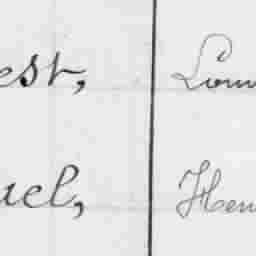 est, Lou
uel, Hen